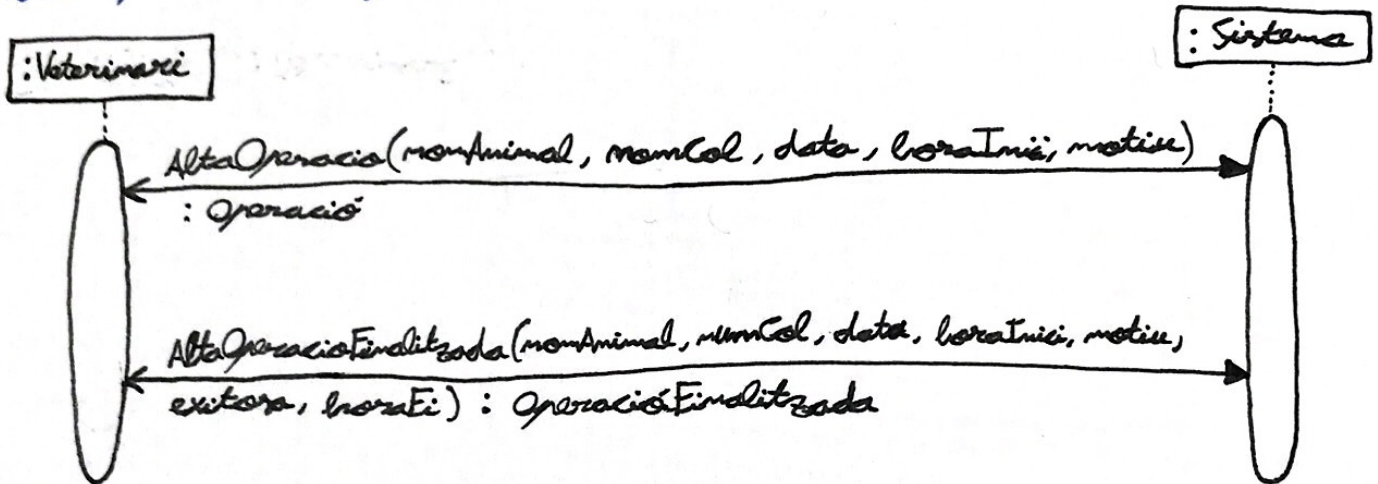 :Veterinari
: Sistema
AltaOperacio(nomAnimal, nomCol, data, horaInici, motiu)
: Operació
AltaOperacioFinalitzada(nomAnimal, numCol, data, horaInici, motiu,
exitosa, horaFi) : OperacióFinalitzada